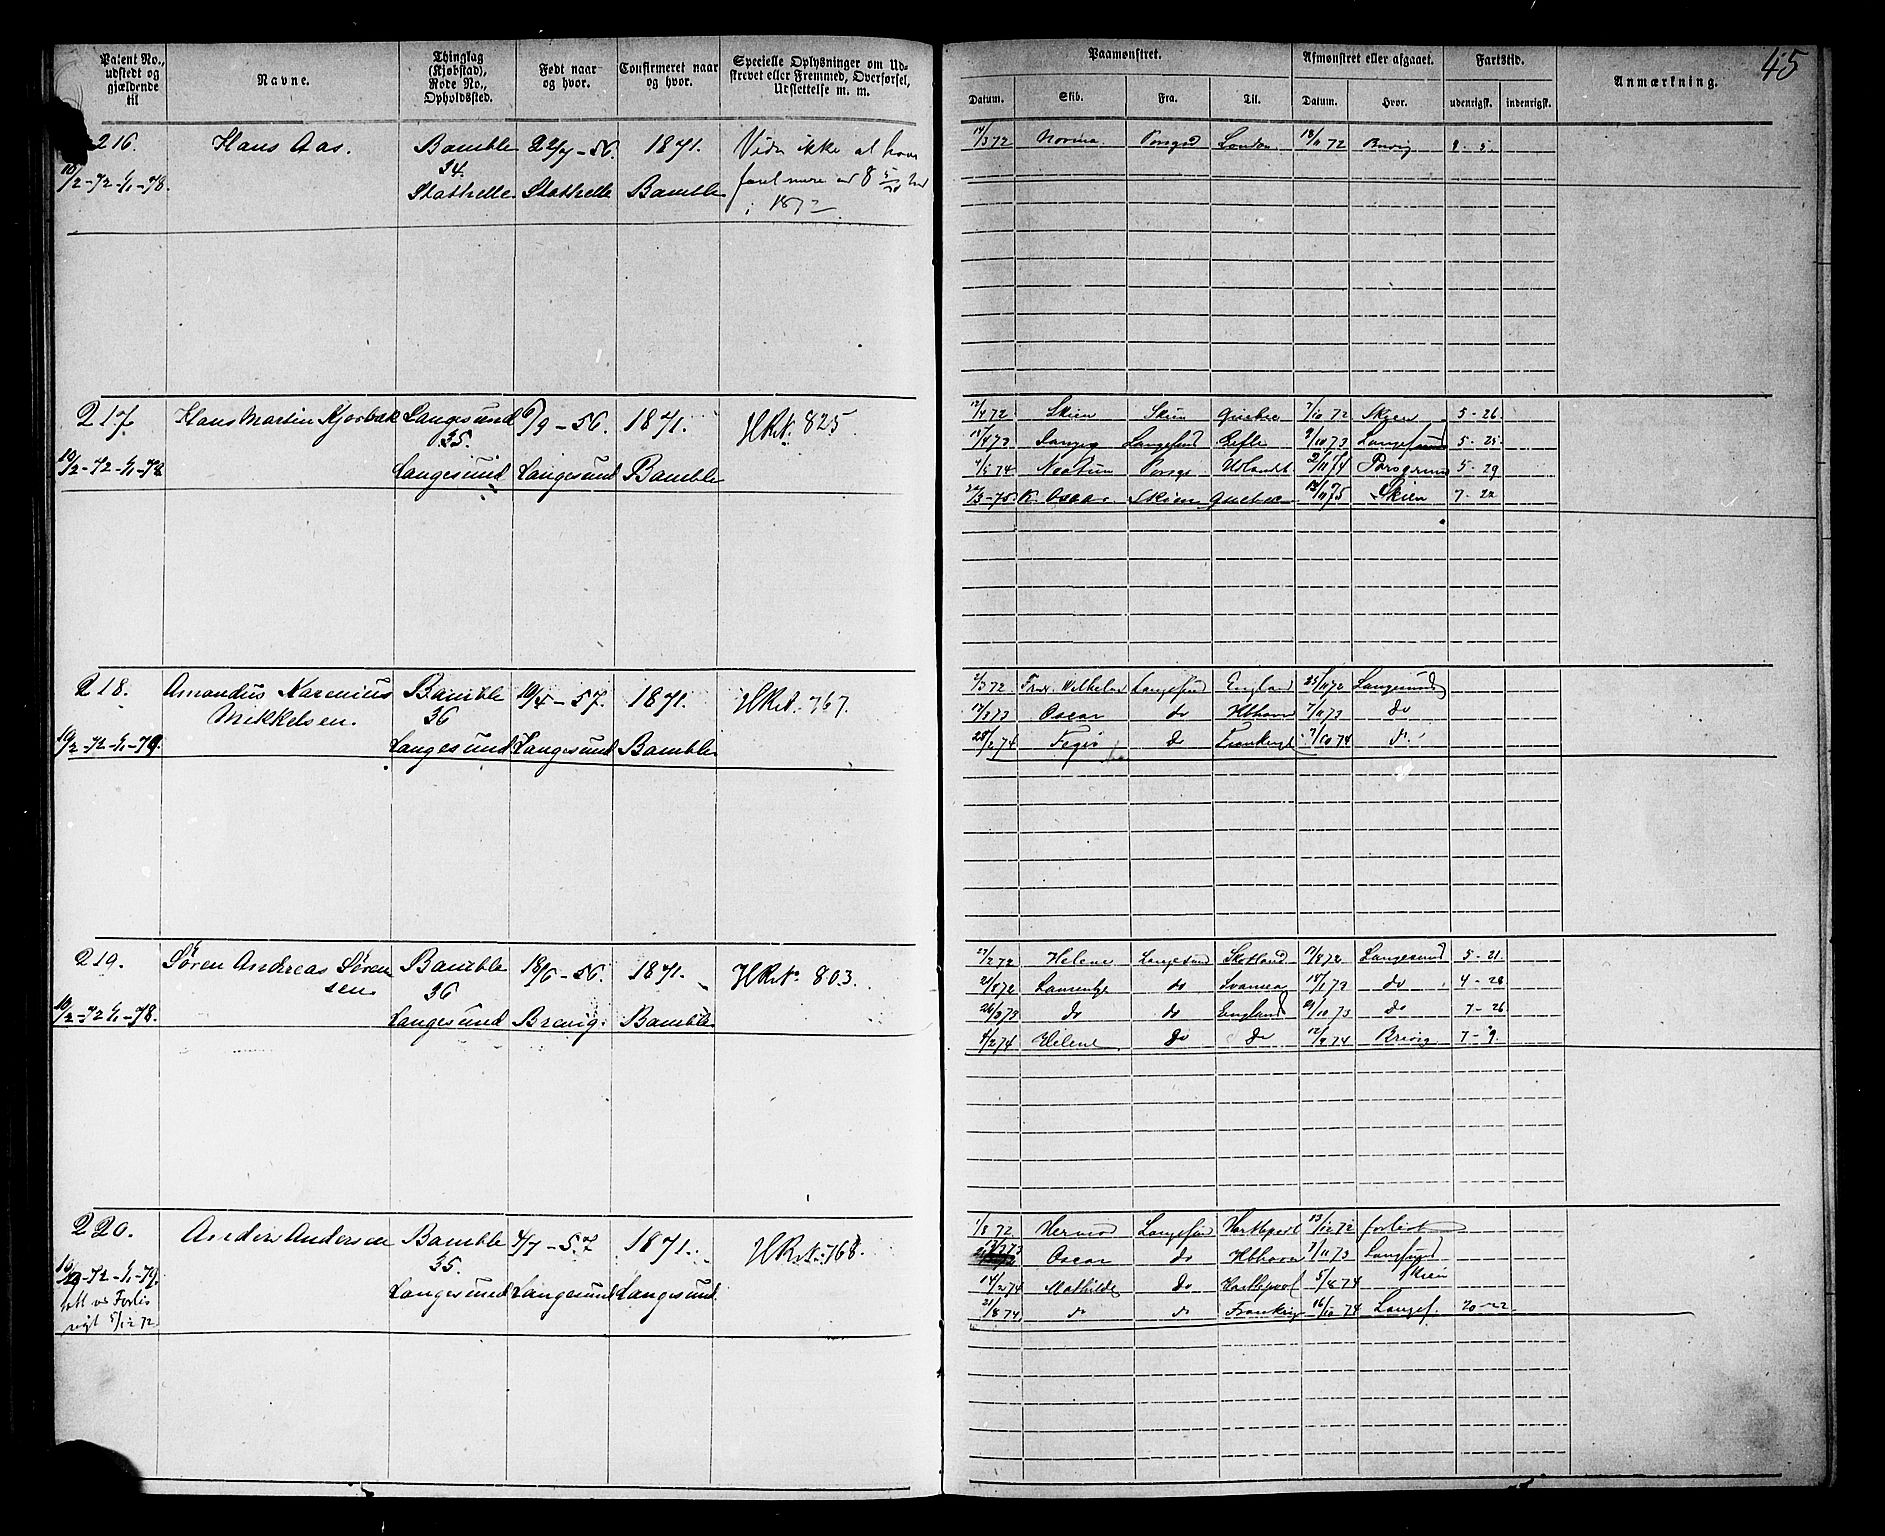 45
Patent No., udstedt og gjældende til
Navne.
Thinglag (Kjøbstad), Rode No., Opholdssted.
Født naar og hvor.
Confirmeret naar og hvor.
Specielle Oplysninger om Udskrevet eller Fremmed, Overførsel, Udslettelse m. m.
Paamønstret.
Afmønstret eller afgaaet.
Fartstid.
Anmærkning.
Datum. Skib. Fra. Til. Datum. Hvor. udenrigsk. indenrigsk.
216. Hans Aas. Bamble 22/7-56. 1871. Vides ikke at have
34.
10/2-72-1/1-78. Stathelle Stathelle Bamble faret mere end 8
i 1872
14/3 72 Norma Porsgd London 18/11 72 Brevig 8. 5.
217. Hans Martin Kjørbæk Langesund 6/9-56. 1871. HR№ 825.
35.
10/2-72-1/1-78 Langesund Langesund Bamble
12/4 72 Skien Skien Quebec 7/10 72 Skien 5-26.
Langesund Gefle 9/10 73 Langesund 5-25.
74 Porsgr 2/11 74 Porsgrund 5-29
3-75 Oscar Skien Quebec 13/11 75 Skien 7-22
218. Amandus Narenius Bamble 10/4-57. 1871. HR№ 767.
Mikkelsen. 36
10/2-72-1/1-79. Langesund Langesund Bamble
2/3 72 Langesund England 25/11 72 Langesund
17/3 73 Oscar do 7/11 73 do
28/2 74 do 7/10 74 do
219. Søren Andreas Søren Bamble 18/6-56. 1871. HR№ 803.
sen. 36
10/2-72 1/1-78. Langesund Brevig. Bamble.
27/2 72 Helene Langesund Skotland 7/8 72 Langesund 5-21.
21/8 72 do Svansea 14/1 73 do 4-28
26/2 73 do do England 19/10 73 do 7-26
4/2 74 Helene do do 12/9 74 Brevig 7-9.
220. Anders Andersen Bamble 4/7-57 1871. HR№ 768.
35.
10/2-72-1/1-79. Langesund Langesund Langesund.
Forlis
5/12 72
1/8 72 Hermod Langesund Hartlepool 13/12 72 forlist
Oscar do 7/11 73 Langesund
14/2 74 Mathilde do Hartlepool 5/8 74 Skien
21/8 74 do do Frankrig 16/10 74 Langes. 20-22.